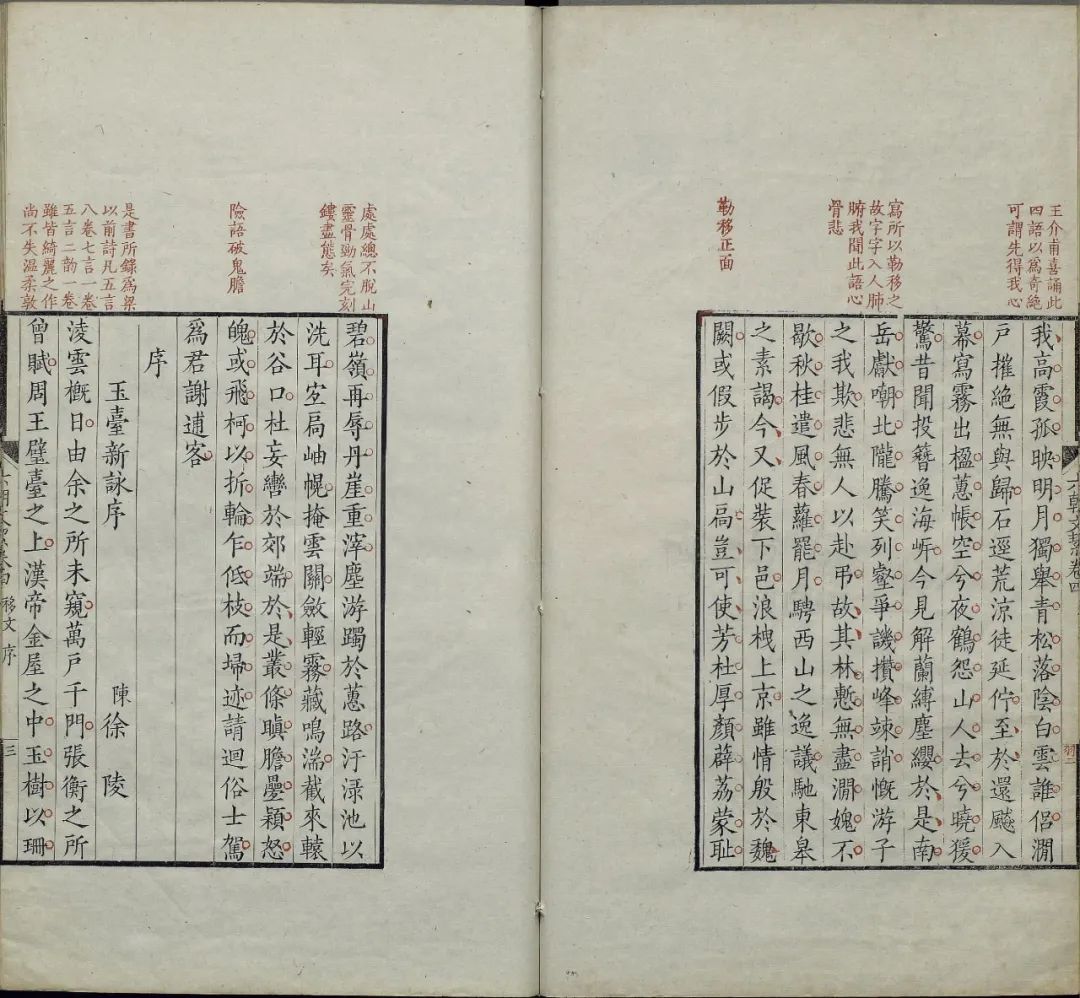 王介甫喜誦此
四語以爲奇絶
可謂先得我心
寫所以勒移之
故字字入人肺
腑我聞此語心
骨悲
勒移正面
我高霞孤映明月獨舉青松落陰白雲誰侶澗
戸摧絶無與歸石逕荒涼徒延佇至於還飇入
幕寫霧出楹蕙帳空兮夜鶴怨山人去兮曉猨
驚昔聞投簪逸海岍今見解蘭縛塵纓於是南
岳獻嘲北隴騰笑列壑爭譏攢峰竦誚慨游子
之我欺悲無人以赴弔故其林慙無盡澗媿不
歇秋桂遣風春蘿罷月騁西山之逸議馳東皋
之素謁今又促裝下邑浪栧上京雖情殷於魏
闕或假步於山扃豈可使芳杜厚顏薜荔蒙耻
六朝文絜卷四
處處總不脫山
靈骨勁氣完刻
鏤盡態矣
險語破鬼膽
是書所錄爲梁
以前詩凡五言
八卷七言一卷
五言二韵一卷
雖皆綺麗之作
尚不失溫柔敦
碧嶺再辱丹崖重滓塵游躅於蕙路汙淥池以
洗耳宜扃岫幌掩雲關斂輕霧藏鳴湍截來轅
於谷口杜妄轡於郊端於是叢條瞋膽疊穎怒
魄或飛柯以折輪乍低枝而埽迹請迴俗士駕
爲君謝逋客
序
玉臺新詠序
陳徐陵
淩雲概日由余之所未窺萬戸千門張衡之所
曾賦周王璧臺之上漢帝金屋之中玉樹以珊
六朝文絜卷四 移文 序
三